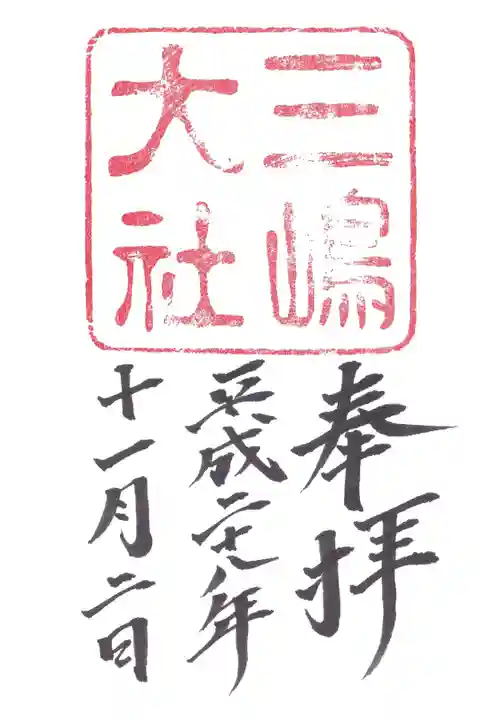 三嶋
大社
奉拝
平成二十九年
十一月二日